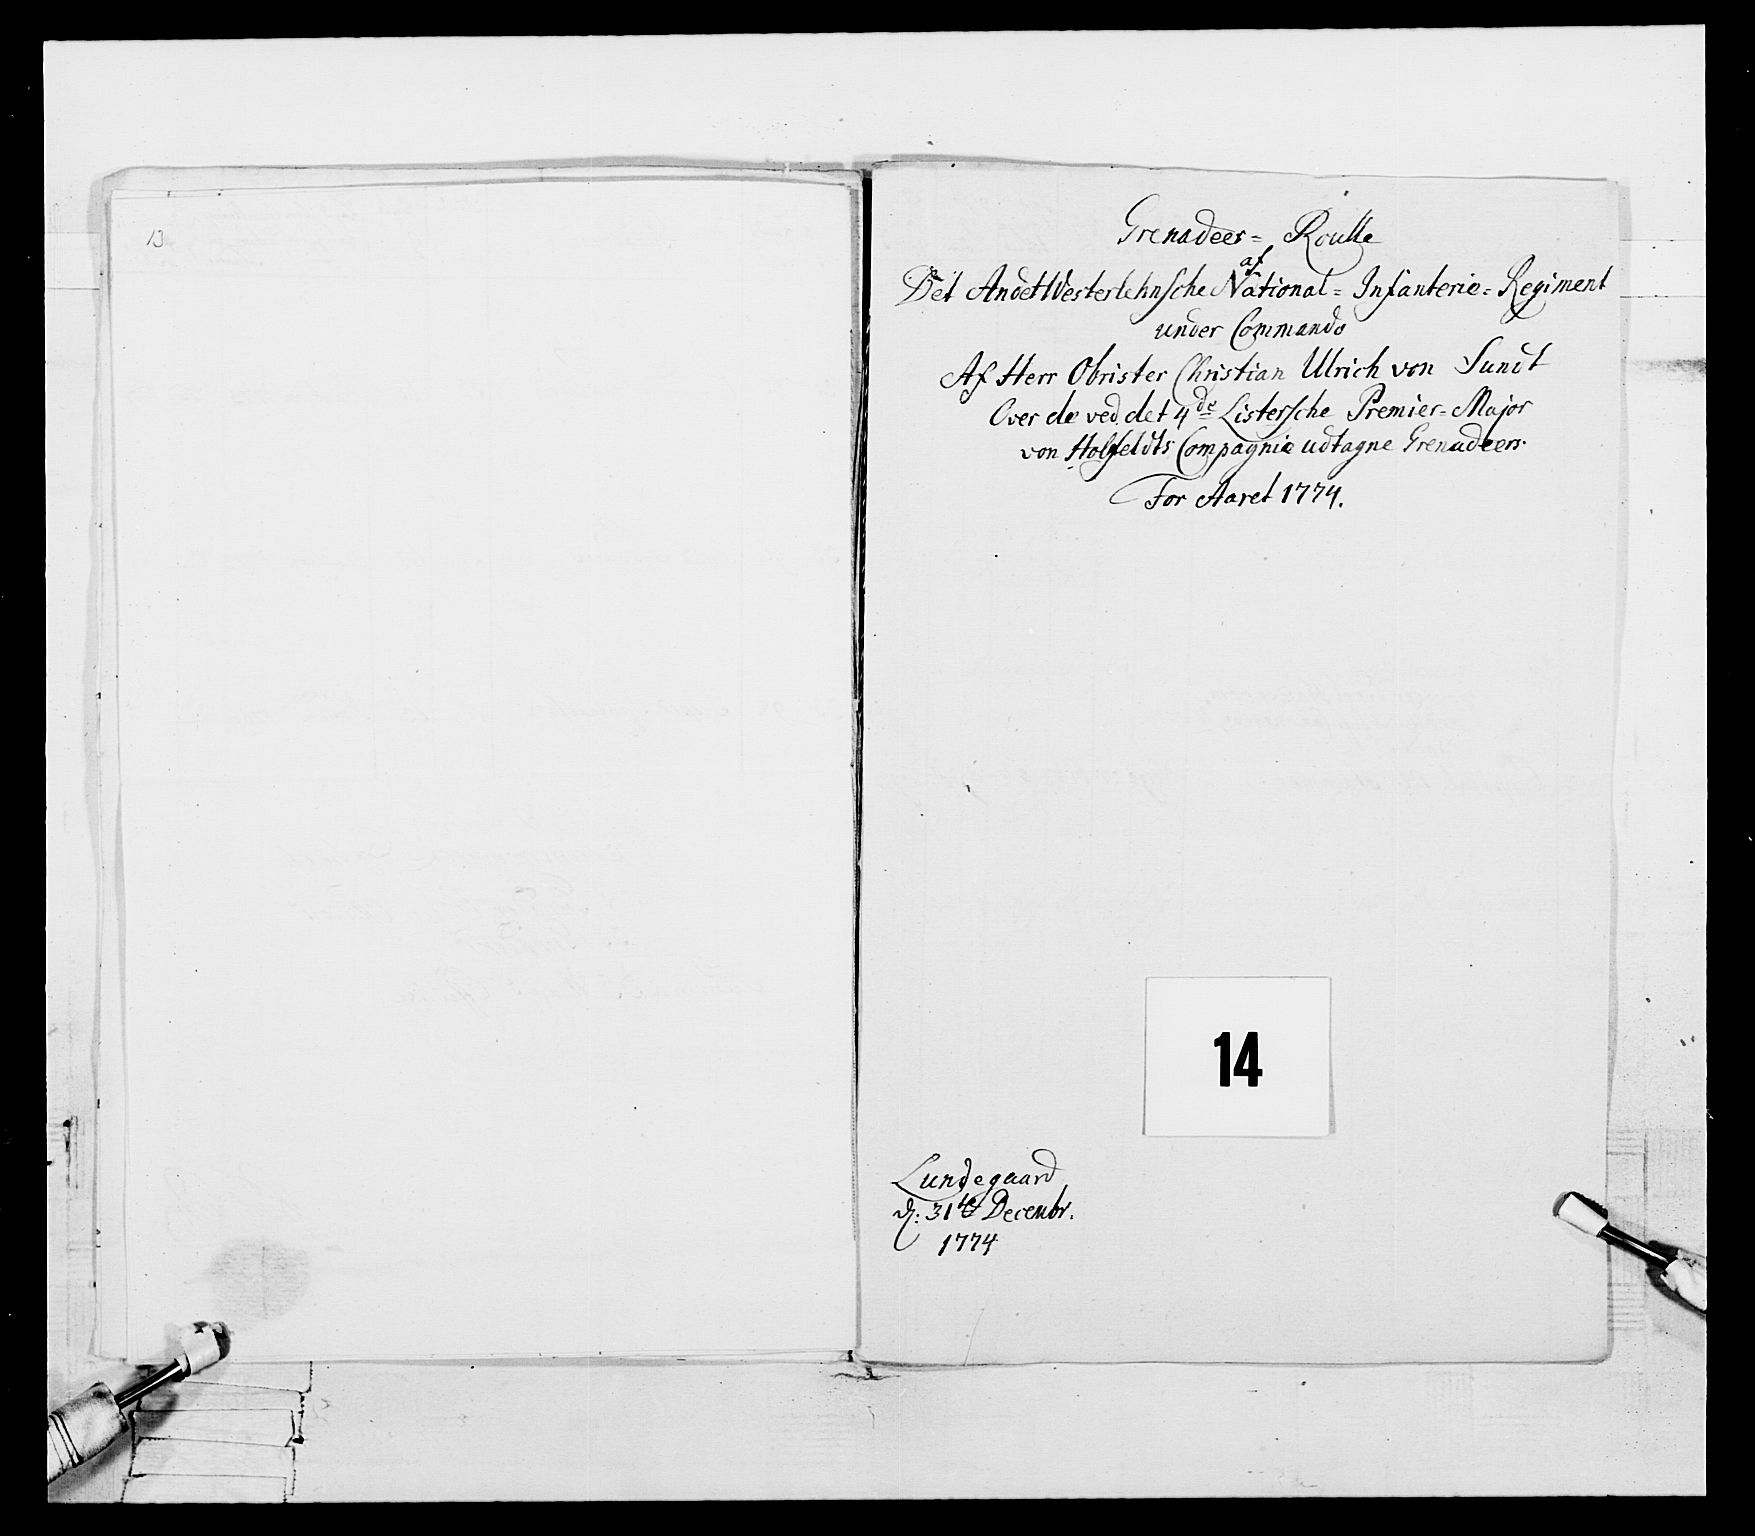 13
Grenadeer= Roulle
af
Det Andet Westerlehnsche National= Infanterie= Regiment
under Commando
Af Herr Obrister Christian Ulrich von Sundt
Over de ved det 4de Listersche Premier=Major
von Holfeldts Compagnie udtagne Grenadeers
For Aaret 1774.
14
Lundegaard
d: 31te Decembr.
1774